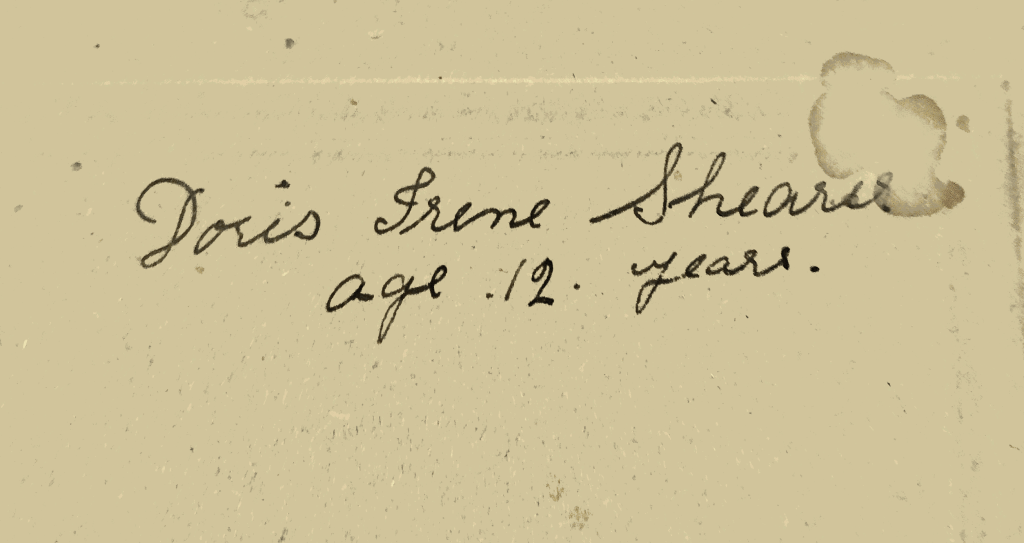 Doris Irene Shearer
age .12. years.